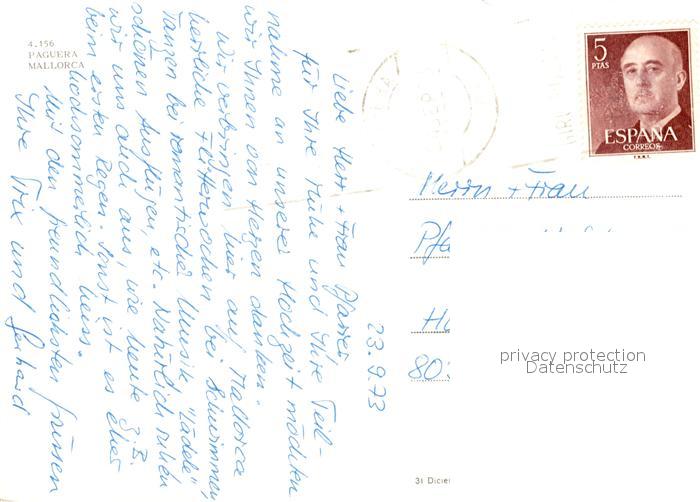 4.156
PAGUERA
MALLORCA
5
PTAS
ESPAÑA
CORREOS
F.N.M.T.
23.9.73
Liebe Herr + Frau Pfarrer
für Ihre Mühe und Ihre Teil-
nahme an unserer Hochzeit möchten
wir Ihnen von Herzen danken.
Wir verbringen hier auf Mallorca
herrliche Flitterwochen bei Schwimmen,
Tanzen bei romantischer Musik, "Lädele"
schönen Ausflügen, etc. Natürlich ruhen
wir uns auch aus, wie heute z.B.
beim ersten Regen. Sonst ist es eher
hochsommerlich heiss.
Mit den freundlichsten Grüssen
Ihre Trix und Gerhard
Herrn + Frau
Pfa
H
80
privacy protection
Datenschutz
31 Diciem